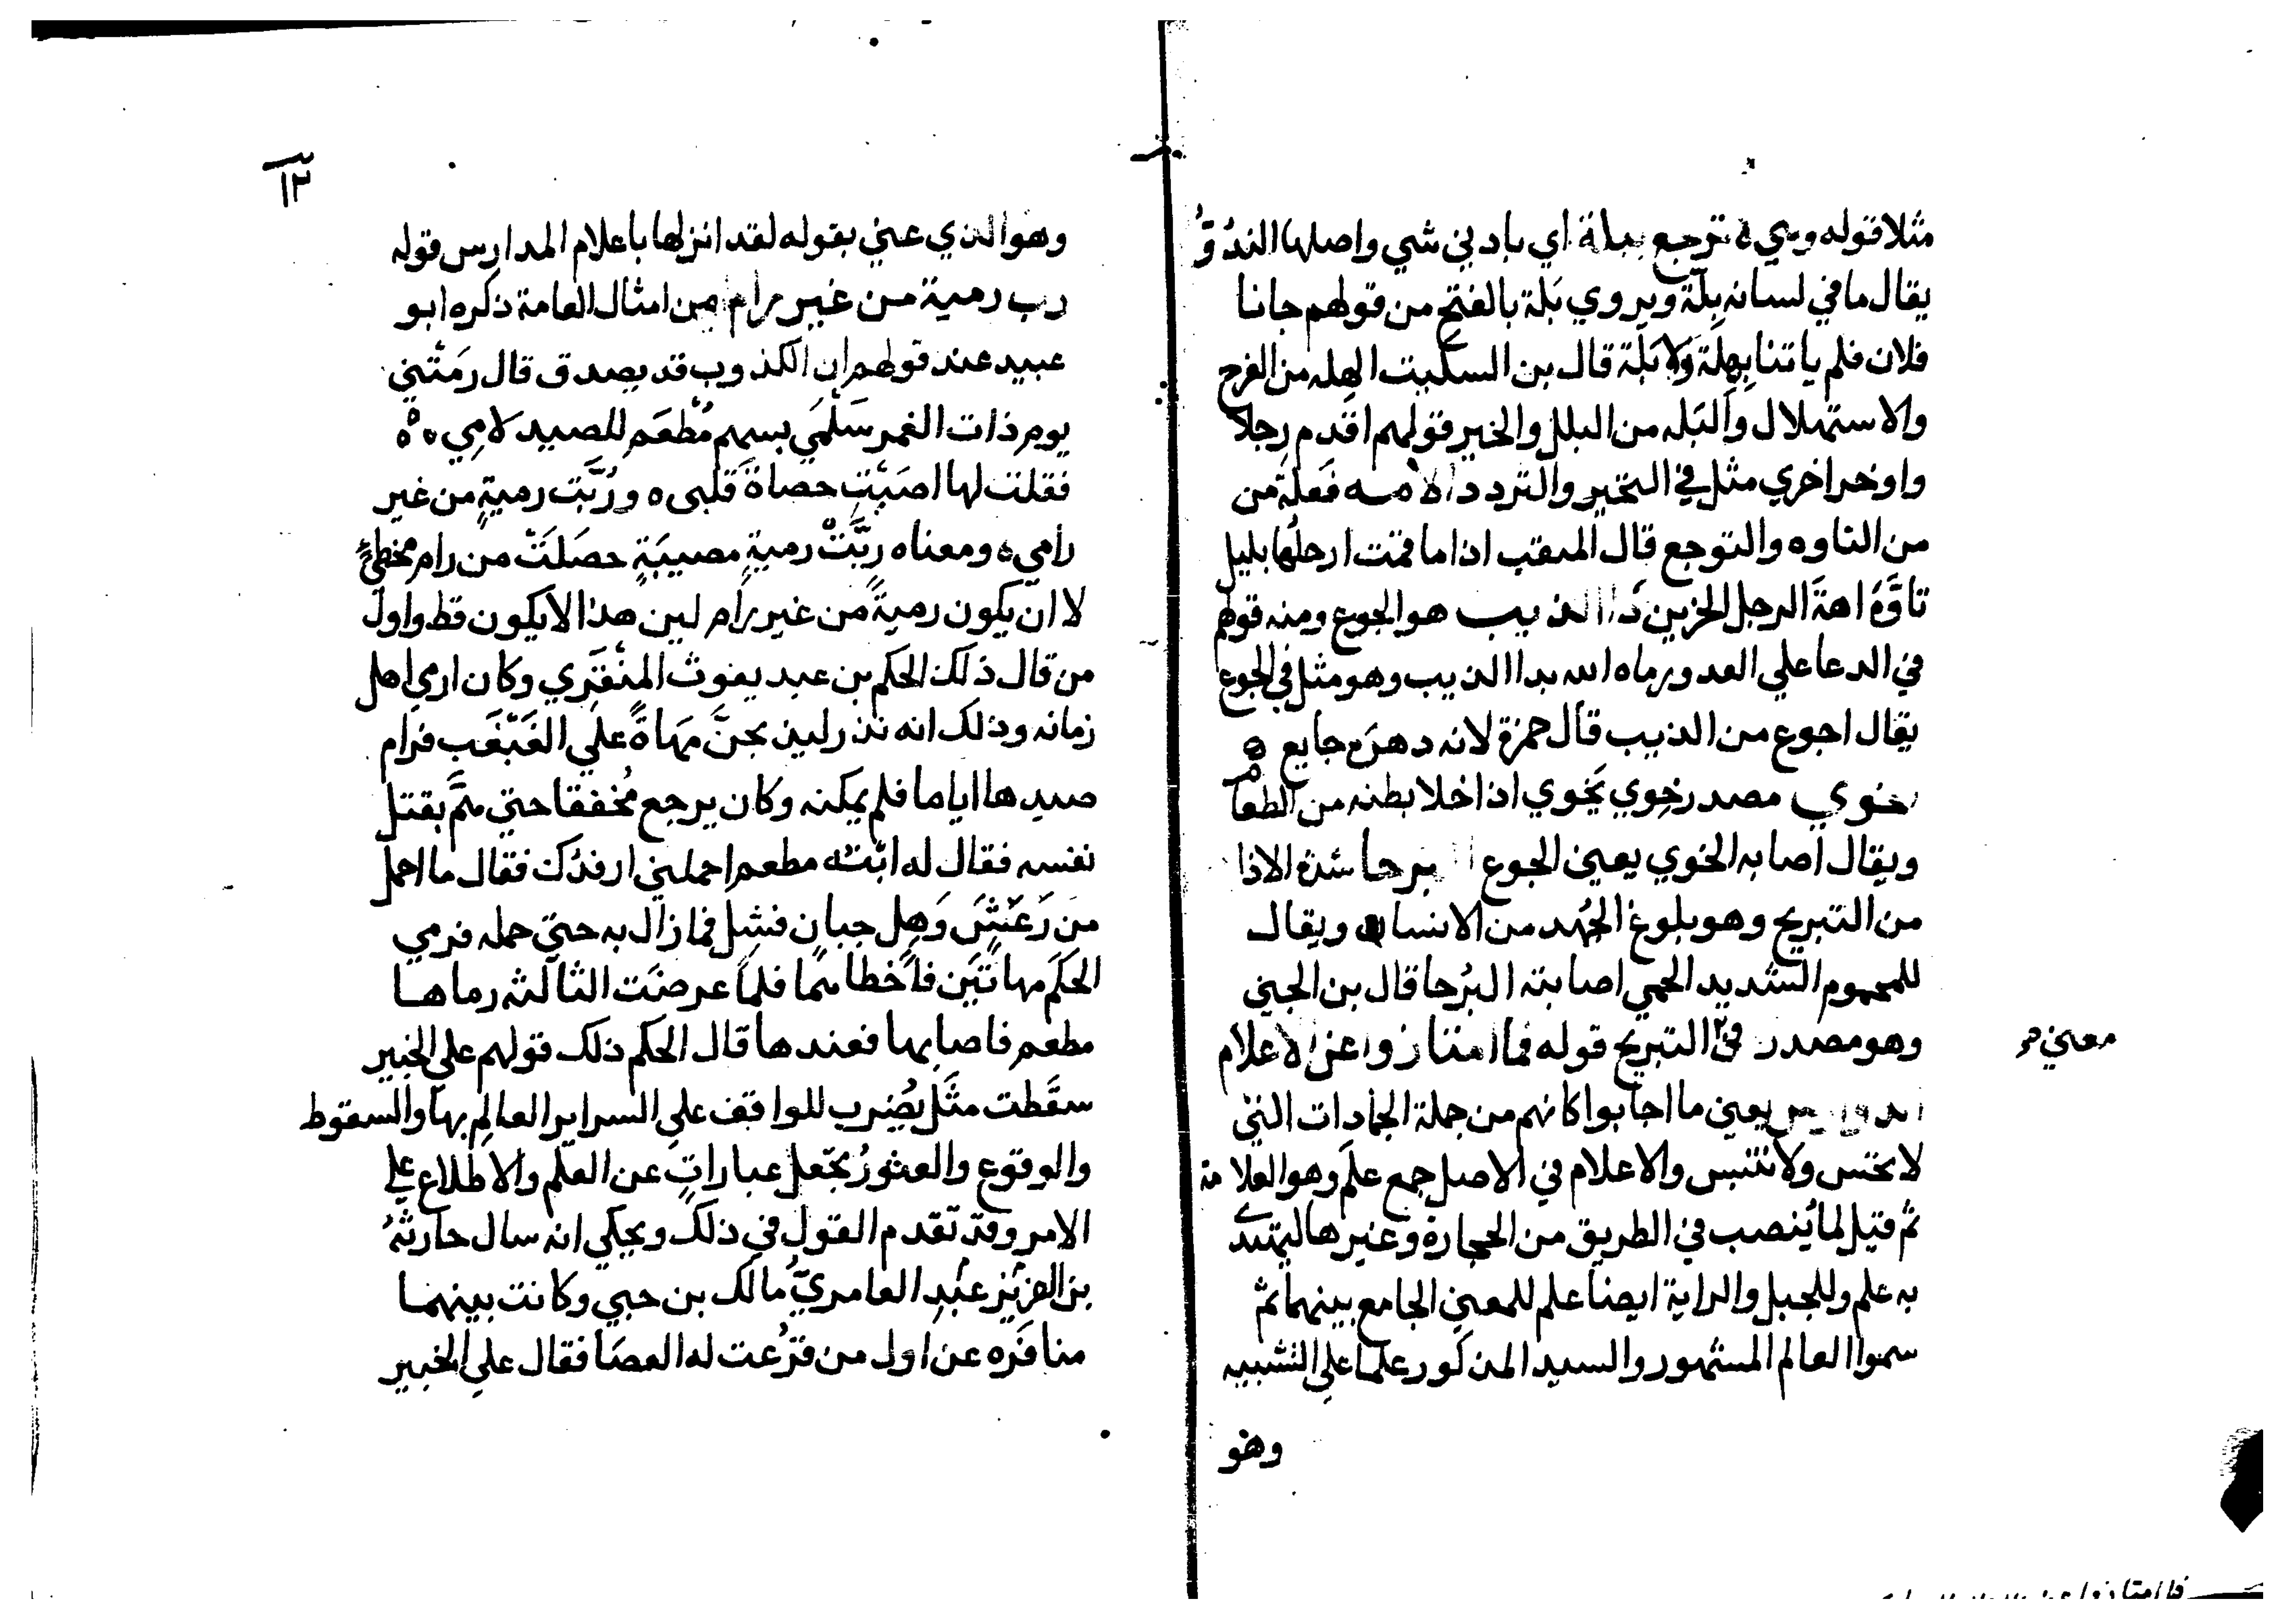 مثلا قوله وهي ترجع ببلة اي بادني شي واصلها الندُوَّ
يقال ما في لسانه بِلّة ويروي بَلة بالفتح من قولهم جانا
فلان فلم ياتنا بِهلَة وَلا بَلّة قال بن السكيت الهله من الفرح
والاستهلال والبَله من البلل والخير قولهم اقدم رجلا
واوخر اخري مثل في التخير والتردد الامه فَعلة من
من التاوه والتوجع قال المثقب اذا ما قمت ارحلُها بليل
تاوَّهُ اهةَ الرجل الحزين دا الذيب هو الجوع ومنه قولهم
في الدعا علي العدو رماه الله بدا الذيب وهو مثل في الجوع
يقال اجوع من الذيب قال حمزة لانه دهرَه جايع
خوي مصدر خوِي يَخوي اذا خلا بطنه من الطعام
ويقال اصابه الخوي يعني الجوع برحا شدة الاذا
من التبريح وهو بلوغ الجُهد من الانسان ويقال
للمحموم الشديد الحمي اصابته البُرحا قال بن الجني
وهو مصدر في التبريح قوله فما امتازوا عن الاعلام
معني
يعني ما اجابوا كانهم من جملة الجمادات التي
لا تحس ولا تنبس والاعلام في الاصل جمع علَم وهو العلامة
ثم قيل لما يُنصب في الطريق من الحجارة وغيرها ليهتدي
به علم وللجبل والراية ايضا علم للمعني الجامع بينهما ثم
سموا العالم المشهور والسيد المذكور علما علي التشبيه
وهو
١٢
وهو الذي عني بقوله لقد انزلها باعلام المدارس قوله
رب رمية من غير رام من امثال العامة ذكره ابو
عبيد عند قولهم ان الكذوب قد يصدق قال رمَتْني
يوم ذات الغمر سَلْمَي بسهم مُطْعَم للصيد لامِي ه
فقلت لها اصَبْتِ حصاةَ قلبي ه ورُبَّت رميةٍ من غير
رامي ه ومعناه رُبَّتْ رميةٍ مصيبَةٍ حصَلَتْ من رام مخطئٍ
لا ان يكون رميةً من غير رام لين هذا لا يكون قط واول
من قال ذلك الحكم بن عبد يغوث المنْقَري وكان ارمي اهل
زمانه وذلك انه نذر ليذبحنَّ مَهاةً علي الغَبْغَب فرام
صيدها اياما فلم يمكنه وكان يرجع مُخفقا حتي همَّ بقتل
نفسه فقال له ابْنه مطعم احملني ارفدْك فقال ما احمل
من رَعْشٍ وَهِل جبان فشِل فما زال به حتي حمله فرمي
الحَكَم مهاتَيْن فاَخطاهما فلما عرضَت الثالثه رماها
مطعم فاصابها فعندها قال الحكم ذلك قولهم علي الخبير
سقَطت مثَل يُضرب للواقف علي السراير العالِم بها والسقوط
والوقوع والعثورُ تجْعل عباراتٍ عن العلم والاطلاع علي
الامر وقد تقدم القول في ذلك ويحكي انه سال حارثةُ
بن العزيز عبْدِ العامريّ مالك بن حبي وكانت بينهما
منافَره عن اول من قرُعت له العصَا فقال علي الخبير